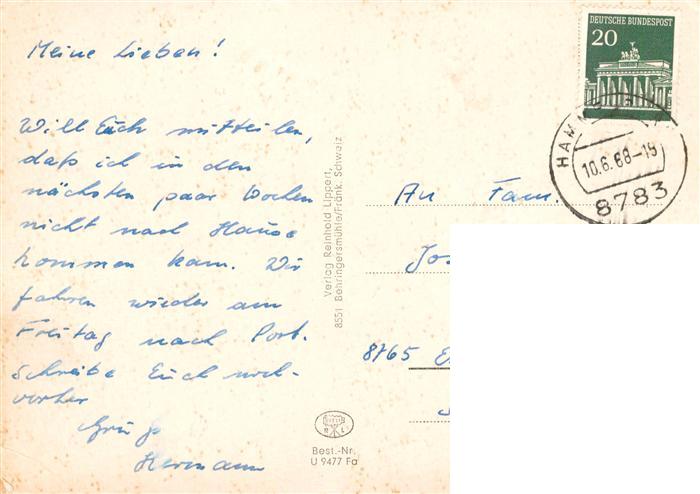 Meine Lieben!
Will Euch mitteilen,
daß ich in den
nächsten paar Wochen
nicht nach Hause
kommen kann. Wir
fahren wieder am
Freitag nach Port.
Schreibe Euch noch-
vorher
Gruß
Hermann
Verlag Reinhold Lippert,
8551 Behringersmühle/Fränk. Schweiz
Best.-Nr.
U 9477 Fa
DEUTSCHE BUNDESPOST
20
10.6.68-18
8783
An Fam.
8765